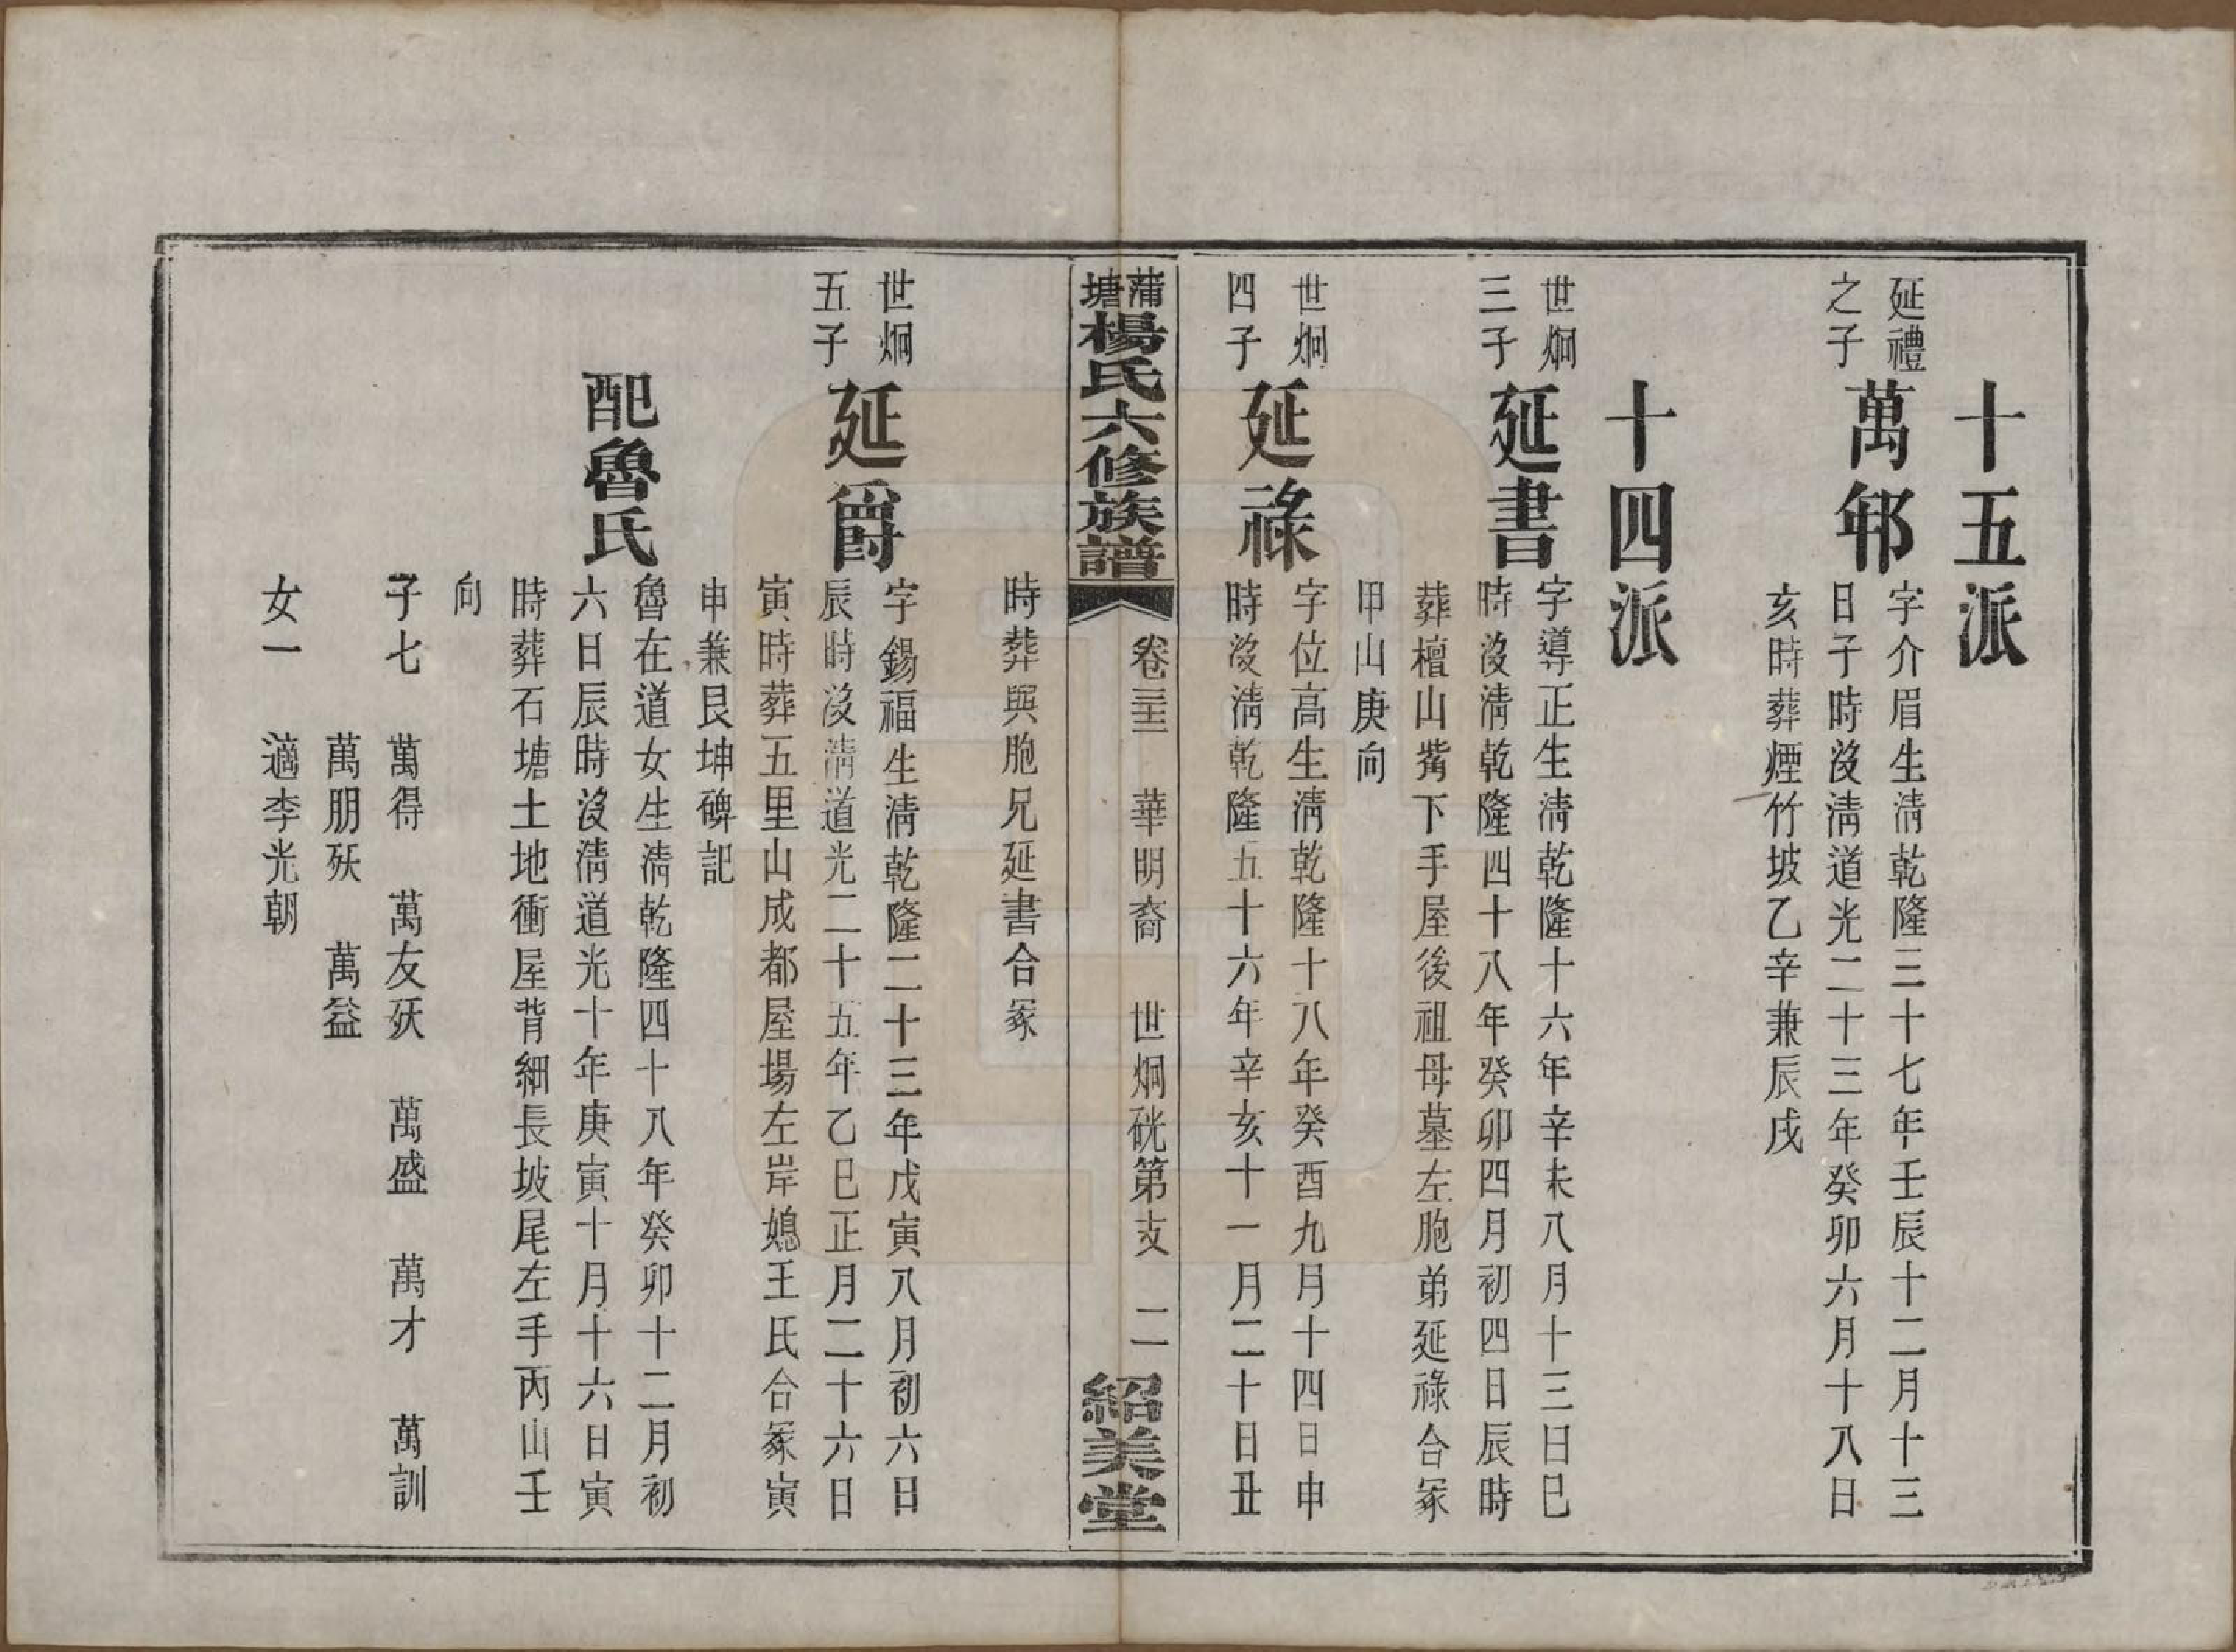 十五派
延禮
之子
萬邨
字介眉生淸乾隆三十七年壬辰十二月十三
日子時沒淸道光二十三年癸卯六月十八日
亥時葬煙竹坡乙辛兼辰戌
十四派
世炯
三子
延書
字導正生淸乾隆十六年辛未八月十三日巳
時沒淸乾隆四十八年癸卯四月初四日辰時
葬檀山嘴下手屋後祖母墓左胞弟延祿合冢
甲山庚向
世炯
四子
延祿
字位高生淸乾隆十八年癸酉九月十四日申
時沒淸乾隆五十六年辛亥十一月二十日丑
蒲塘楊氏六修族譜
卷三十三 華明裔 世炯硄第支 二
紹美堂
時葬與胞兄延書合冢
世炯
五子
延爵
字錫福生淸乾隆二十三年戊寅八月初六日
辰時沒淸道光二十五年乙巳正月二十六日
寅時葬五里山成都屋場左岸媳王氏合冢寅
申兼艮坤碑記
配魯氏
魯在道女生淸乾隆四十八年癸卯十二月初
六日辰時沒淸道光十年庚寅十月十六日寅
時葬石塘土地衝屋背細長坡尾左手丙山壬
向
子七 萬得 萬友殀 萬盛 萬才 萬訓
萬朋殀 萬益
女一 適李光朝